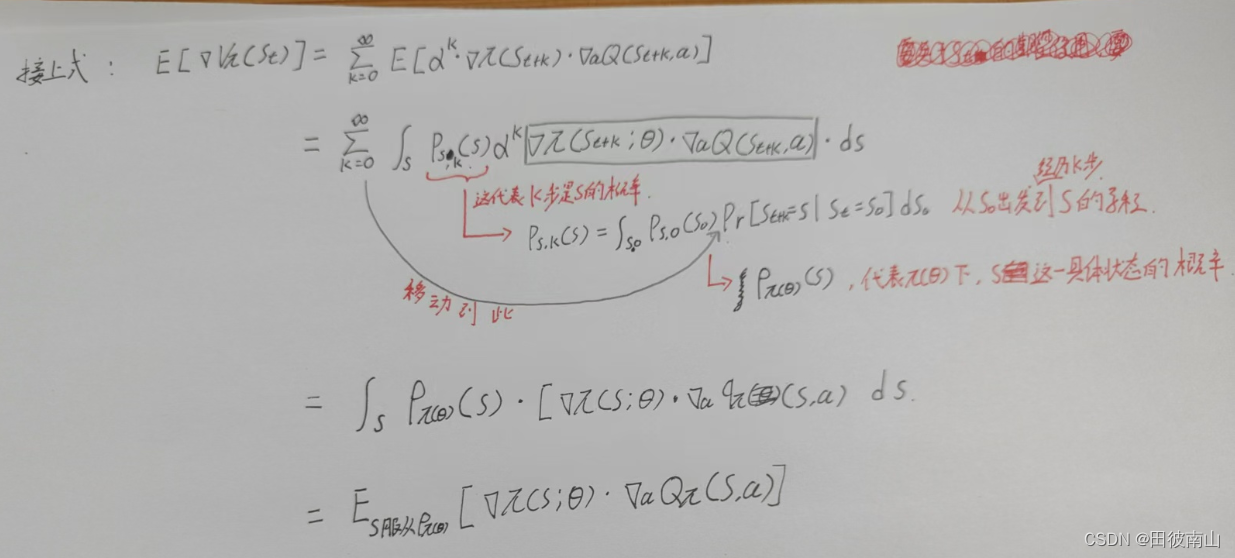 接上式： E[∇Vπ(St)] = ∑_{k=0}^{∞} E[α^k·∇π(St+k)·∇aQ(St+k,a)]
= ∑_{k=0}^{∞} ∫_S P_{s,k}(s) α^k ∇π(St+k;θ)·∇aQ(St+k,a)·ds
这代表k步是S的概率.
经历k步
P_{s,k}(s) = ∫_{s0} P_{s,0}(s0) Pr[St+k=S|St=S0]ds0 从S0出发到S的
移动到此
ρπ(θ)(s)，代表π(θ)下，S这一具体状态的概率
= ∫_S ρπ(θ)(s)·[∇π(s;θ)·∇a qπ(s,a) ds.
= E_{S服从ρπ(θ)}[∇π(s;θ)·∇aQπ(s,a)]
CSDN @田彼南山